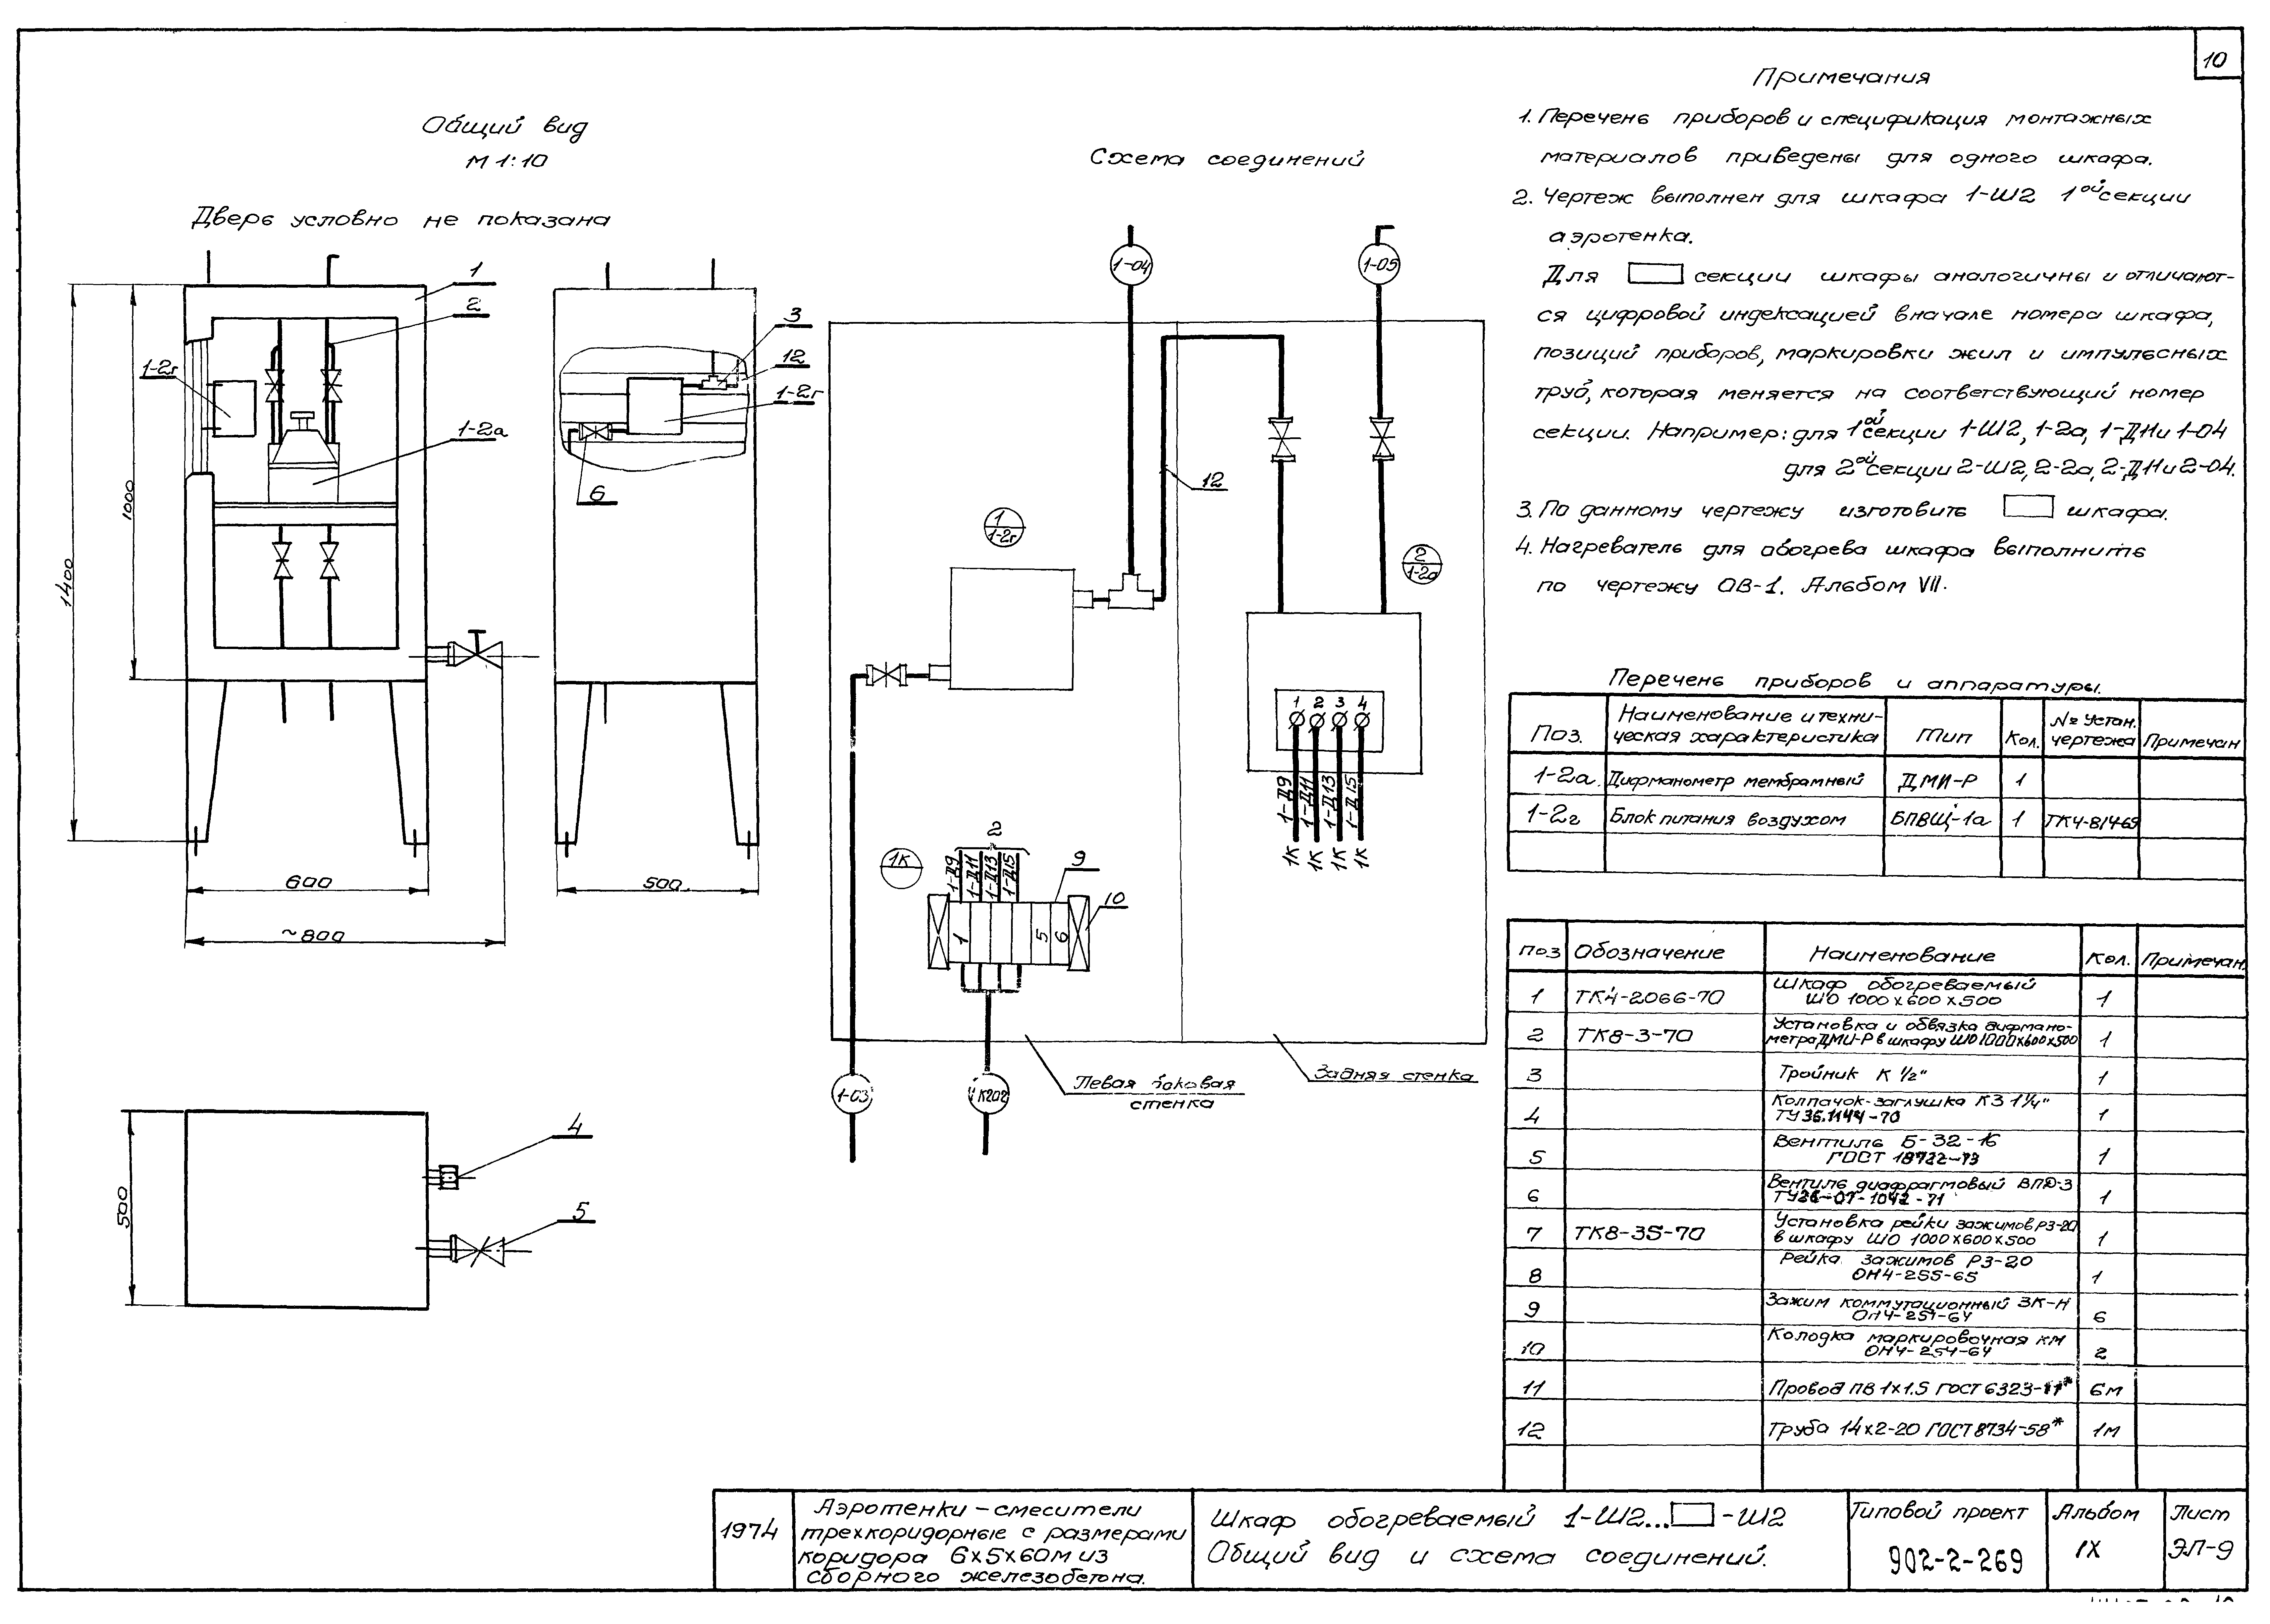 10
Общий вид
М 1:10
Дверь условно не показана
1
2
1-2г
1-2а
1400
1000
600
~800
3
12
1-2г
6
500
4
5
500
Схема соединений
1-04
1-05
12
1
1-2г
2
1-2а
1 2 3 4
1-Д9
1-Д11
1-Д13
1-Д15
1К 1К 1К 1К
1К
2
1-Д9
1-Д11
1-Д13
1-Д15
9
10
1 5 6
1-03
Левая боковая
стенка
Задняя стенка
Примечания
1. Перечень приборов и спецификация монтажных
материалов приведены для одного шкафа.
2. Чертеж выполнен для шкафа 1-Ш2 1ой секции
аэротенка.
Для секции шкафы аналогичны и отличают-
ся цифровой индексацией вначале номера шкафа,
позиций приборов, маркировки жил и импульсных
труб, которая меняется на соответствующий номер
секции. Например: для 1ой секции 1-Ш2, 1-2а, 1-Д11 и 1-04
для 2ой секции 2-Ш2, 2-2а, 2-Д11 и 2-04.
3. По данному чертежу изготовить шкафа.
4. Нагреватель для обогрева шкафа выполнить
по чертежу ОВ-1. Альбом VII.
Перечень приборов и аппаратуры.
Поз. Наименование и техни-ческая характеристика Тип Кол. № Устан. чертежа Примечан
1-2а. Дифманометр мембранный ДМИ-Р 1
1-2г Блок питания воздухом БПВЩ-1а 1 ТК4-814-69
поз Обозначение Наименование Кол. Примечан.
1 ТК4-2066-70 Шкаф обогреваемый ШО 1000х600х500 1
2 ТК8-3-70 Установка и обвязка дифмано-метра ДМИ-Р в шкафу ШО 1000х600х500 1
3 Тройник К 1/2" 1
4 Колпачок-заглушка КЗ 1 1/4" ТУ 36.1144-70 1
5 Вентиль Б-32-16 ГОСТ 18722-73 1
6 Вентиль диафрагмовый ВПД-3 ТУ26-07-1042-71 1
7 ТК8-35-70 Установка рейки зажимов РЗ-20 в шкафу ШО 1000х600х500 1
8 Рейка зажимов РЗ-20 ОН4-255-65 1
9 Зажим коммутационный ЗК-Н ОН4-251-64 6
10 Колодка маркировочная КМ ОН4-254-64 2
11 Провод ПВ 1х1.5 ГОСТ 6323-71* 6м
12 Труба 14х2-20 ГОСТ 8734-58* 1м
1974
Аэротенки-смесители
трехкоридорные с размерами
коридора 6х5х60м из
сборного железобетона.
Шкаф обогреваемый 1-Ш2... -Ш2
Общий вид и схема соединений.
Типовой проект
902-2-269
Альбом
IX
Лист
ЭЛ-9